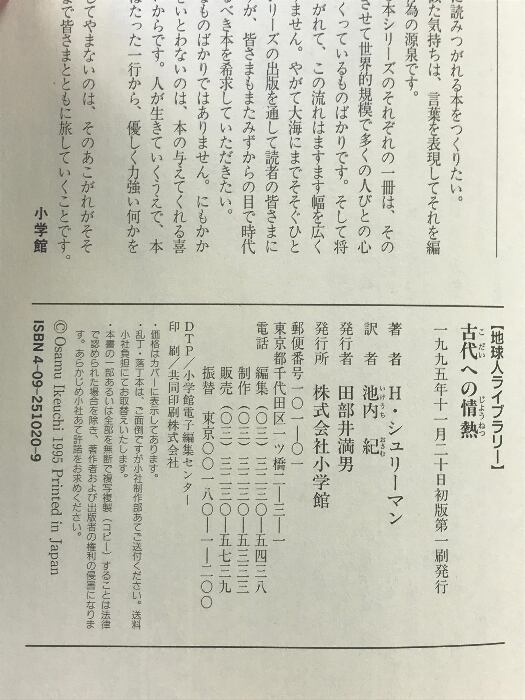 に読みつがれる本をつくりたい。
似た気持ちは、言葉を表現してそれを編
為の源泉です。
本シリーズのそれぞれの一冊は、その
させて世界的規模で多くの人びとの心
くっているものばかりです。そして将
がれて、この流れはますます幅を広く
ません。やがて大海にまでそそぐひと
リーズの出版を通して読者の皆さまに
が、皆さまもまたみずからの目で時代
べき本を希求していただきたい。
なものばかりではありません。にもかか
さいとわないのは、本の与えてくれる喜
からです。人が生きていくうえで、本
はたった一行から、優しく力強い何かを
してやまないのは、そのあこがれがそそ
まで皆さまとともに旅していくことです。
小学館
【地球人ライブラリー】
古代への情熱
こだい じょうねつ
一九九五年十一月二十日初版第一刷発行
著者 H・シュリーマン
訳者 池内 紀
いけうち おさむ
発行者 田部井満男
発行所 株式会社小学館
郵便番号一〇一-〇一
東京都千代田区一ツ橋二-三-一
電話 編集(〇三)三二三〇-五四三八
制作(〇三)三二三〇-五三三三
販売(〇三)三二三〇-五七三九
振替 東京〇〇一八〇-一-二〇〇
DTP/小学館電子編集センター
印刷/共同印刷株式会社
・価格はカバーに表示してあります。
・乱丁・落丁本は、ご面倒ですが小社制作部あてご送付ください。送料
小社負担にてお取替えいたします。
・本書の一部あるいは全部を無断で複写複製(コピー)することは法律
で認められた場合を除き、著作者および出版者の権利の侵害になりま
す。あらかじめ小社あて許諾をお求めください。
©Osamu Ikeuchi 1995 Printed in Japan
ISBN4-09-251020-9